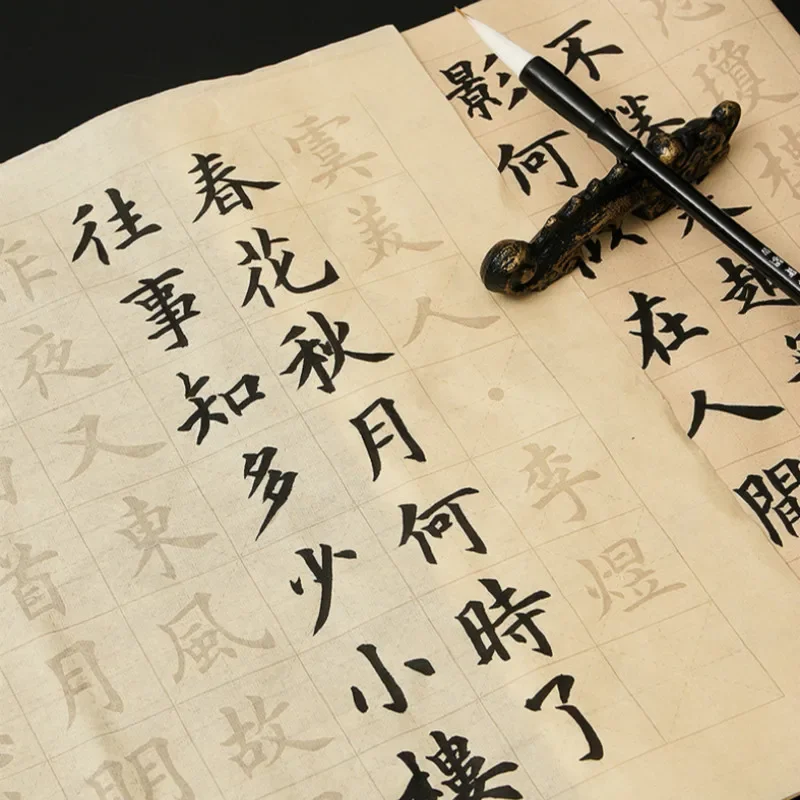 恐瓊樓
不
影何在人間
虞美人
李煜
春花秋月何時了
往事知多少小樓
昨夜又東風故
首月明